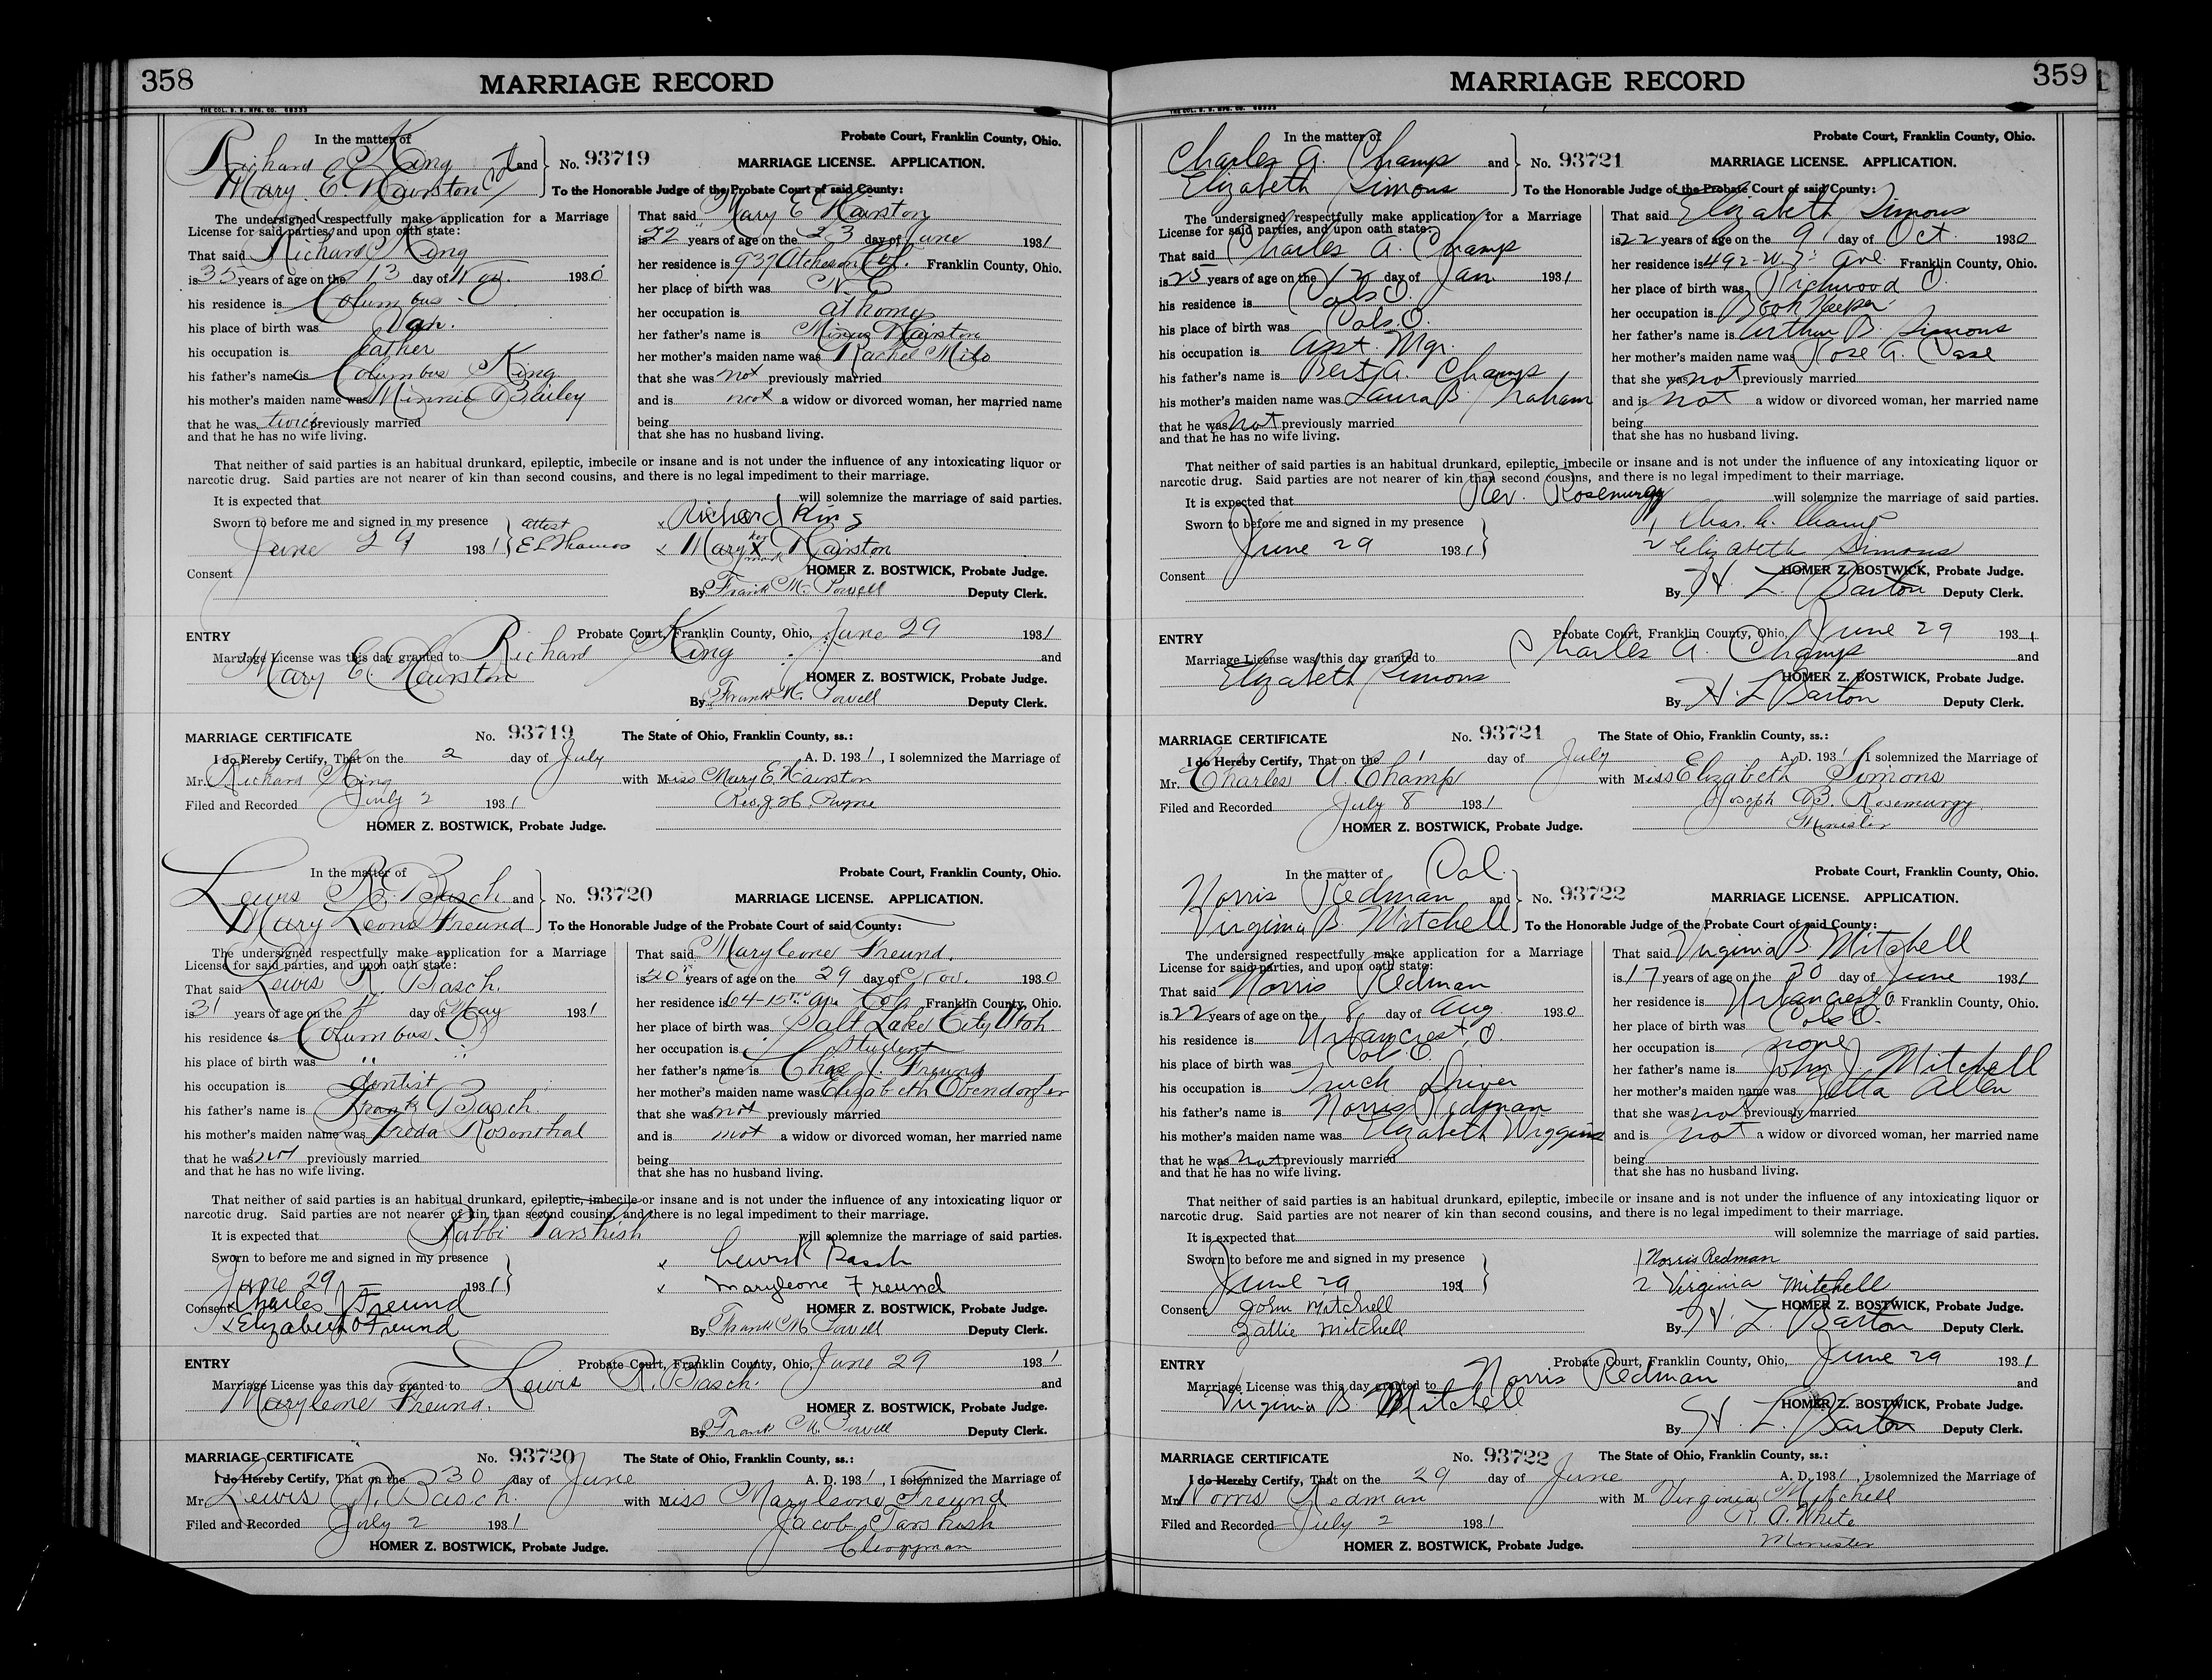 358
MARRIAGE RECORD
THE COL. B. B. MFG. CO. 68333
In the matter of
Probate Court, Franklin County, Ohio.
Richard King Col and
No. 93719
MARRIAGE LICENSE. APPLICATION.
Mary E. Hairston
To the Honorable Judge of the Probate Court of said County:
The undersigned respectfully make application for a Marriage
License for said parties, and upon oath state:
That said Richard King
is 35 years of age on the 13 day of Nov. 1930
his residence is Columbus O.
his place of birth was
his occupation is
his father's name is Columbus King
his mother's maiden name was Minnie Bailey
that he was twice previously married
and that he has no wife living.
That said Mary E Hairston
is 22 years of age on the 23 day of June 1931
her residence is 937 Atcheson Col. Franklin County, Ohio.
her place of birth was N. C
her occupation is at home
her father's name is Hairston
her mother's maiden name was Rachel
that she was not previously married
and is not a widow or divorced woman, her married name
being
that she has no husband living.
That neither of said parties is an habitual drunkard, epileptic, imbecile or insane and is not under the influence of any intoxicating liquor or
narcotic drug. Said parties are not nearer of kin than second cousins, and there is no legal impediment to their marriage.
It is expected that will solemnize the marriage of said parties.
Sworn to before me and signed in my presence
attest
x Richard King
June 29 1931
E L Thomas
x Mary her x mark Hairston
Consent
HOMER Z. BOSTWICK, Probate Judge.
By Frank M. Powell Deputy Clerk.
ENTRY
Probate Court, Franklin County, Ohio, June 29 1931
Marriage License was this day granted to Richard King and
Mary E. Hairston
HOMER Z. BOSTWICK, Probate Judge.
By Frank M. Powell Deputy Clerk.
MARRIAGE CERTIFICATE No. 93719 The State of Ohio, Franklin County, ss.:
I do Hereby Certify, That on the 2 day of July A. D. 1931, I solemnized the Marriage of
Mr. Richard King with Miss Mary E. Hairston
Filed and Recorded July 2 1931 Rev. J. H.
HOMER Z. BOSTWICK, Probate Judge.
In the matter of
Probate Court, Franklin County, Ohio.
Lewis R. Basch and
No. 93720
MARRIAGE LICENSE. APPLICATION.
Mary Leone Freund
To the Honorable Judge of the Probate Court of said County:
The undersigned respectfully make application for a Marriage
License for said parties, and upon oath state:
That said Lewis R. Basch.
is 31 years of age on the 11 day of May 1931
his residence is Columbus. O
his place of birth was " "
his occupation is dentist
his father's name is Frank Basch.
his mother's maiden name was Freda Rosenthal
that he was not previously married
and that he has no wife living.
That said Maryleone Freund.
is 20 years of age on the 29 day of Nov. 1930
her residence is 64-15th Ave Cols Franklin County, Ohio.
her place of birth was Salt Lake City, Utah
her occupation is Student
her father's name is Chas J. Freund
her mother's maiden name was Elizabeth Obendorfer
that she was not previously married
and is not a widow or divorced woman, her married name
being
that she has no husband living.
That neither of said parties is an habitual drunkard, epileptic, imbecile or insane and is not under the influence of any intoxicating liquor or
narcotic drug. Said parties are not nearer of kin than second cousins, and there is no legal impediment to their marriage.
It is expected that Rabbi Tarshish will solemnize the marriage of said parties.
Sworn to before me and signed in my presence
x Lewis R Basch
June 29 1931
x Maryleone Freund
Consent x Charles J Freund
HOMER Z. BOSTWICK, Probate Judge.
x Elizabeth O Freund
By Frank M Powell Deputy Clerk.
ENTRY
Probate Court, Franklin County, Ohio, June 29 1931
Marriage License was this day granted to Lewis R. Basch. and
Maryleone Freund.
HOMER Z. BOSTWICK, Probate Judge.
By Frank M. Powell Deputy Clerk.
MARRIAGE CERTIFICATE No. 93720 The State of Ohio, Franklin County, ss.:
I do Hereby Certify, That on the 30 day of June A. D. 1931, I solemnized the Marriage of
Mr. Lewis R. Basch. with Miss Maryleone Freund
Filed and Recorded July 2 1931 Jacob Tarshish
HOMER Z. BOSTWICK, Probate Judge. Clergyman
359
MARRIAGE RECORD
THE COL. B. B. MFG. CO. 68333
In the matter of
Probate Court, Franklin County, Ohio.
Charles A. Champ and
No. 93721
MARRIAGE LICENSE. APPLICATION.
Elizabeth Simons
To the Honorable Judge of the Probate Court of said County:
The undersigned respectfully make application for a Marriage
License for said parties, and upon oath state:
That said Charles A. Champ
is 25 years of age on the 12 day of Jan 1931
his residence is Cols O.
his place of birth was Cols O.
his occupation is Asst. Mgr.
his father's name is Bert A. Champ
his mother's maiden name was Laura B. Graham
that he was not previously married
and that he has no wife living.
That said Elizabeth Simons
is 22 years of age on the 9 day of Oct. 1930
her residence is 492-W. 7th Ave Franklin County, Ohio.
her place of birth was Richwood O.
her occupation is Book Keeper
her father's name is Arthur B. Simons
her mother's maiden name was Rose A. Case
that she was not previously married
and is not a widow or divorced woman, her married name
being
that she has no husband living.
That neither of said parties is an habitual drunkard, epileptic, imbecile or insane and is not under the influence of any intoxicating liquor or
narcotic drug. Said parties are not nearer of kin than second cousins, and there is no legal impediment to their marriage.
It is expected that Rev. Rosemurgy will solemnize the marriage of said parties.
Sworn to before me and signed in my presence
1 Chas. A. Champ
June 29 1931
2 Elizabeth Simons
Consent
HOMER Z. BOSTWICK, Probate Judge.
By H. L. Barton Deputy Clerk.
ENTRY
Probate Court, Franklin County, Ohio, June 29 1931
Marriage License was this day granted to Charles A. Champ and
Elizabeth Simons
HOMER Z. BOSTWICK, Probate Judge.
By H. L. Barton Deputy Clerk.
MARRIAGE CERTIFICATE No. 93721 The State of Ohio, Franklin County, ss.:
I do Hereby Certify, That on the 1 day of July A. D. 1931 I solemnized the Marriage of
Mr. Charles A. Champ with Miss Elizabeth Simons
Filed and Recorded July 8 1931 Joseph B. Rosemurgy
HOMER Z. BOSTWICK, Probate Judge. Minister
In the matter of Col.
Probate Court, Franklin County, Ohio.
Norris Redman and
No. 93722
MARRIAGE LICENSE. APPLICATION.
Virginia B Mitchell
To the Honorable Judge of the Probate Court of said County:
The undersigned respectfully make application for a Marriage
License for said parties, and upon oath state:
That said Norris Redman
is 22 years of age on the 8 day of Aug. 1930
his residence is Urbancrest, O.
his place of birth was Col O.
his occupation is Truck Driver
his father's name is Norris Redman
his mother's maiden name was Elizabeth Wiggins
that he was not previously married
and that he has no wife living.
That said Virginia B Mitchell
is 17 years of age on the 20 day of June 1931
her residence is Urbancrest O Franklin County, Ohio.
her place of birth was Cols O.
her occupation is none
her father's name is John J Mitchell
her mother's maiden name was Allen
that she was not previously married
and is not a widow or divorced woman, her married name
being
that she has no husband living.
That neither of said parties is an habitual drunkard, epileptic, imbecile or insane and is not under the influence of any intoxicating liquor or
narcotic drug. Said parties are not nearer of kin than second cousins, and there is no legal impediment to their marriage.
It is expected that will solemnize the marriage of said parties.
Sworn to before me and signed in my presence
1 Norris Redman
June 29 1931
2 Virginia Mitchell
Consent John Mitchell
HOMER Z. BOSTWICK, Probate Judge.
Zallie Mitchell
By H. L. Barton Deputy Clerk.
ENTRY
Probate Court, Franklin County, Ohio, June 29 1931
Marriage License was this day granted to Norris Redman and
Virginia B. Mitchell
HOMER Z. BOSTWICK, Probate Judge.
By H. L. Barton Deputy Clerk.
MARRIAGE CERTIFICATE No. 93722 The State of Ohio, Franklin County, ss.:
I do Hereby Certify, That on the 29 day of June A. D. 1931, I solemnized the Marriage of
Mr Norris Redman with M Virginia Mitchell
Filed and Recorded July 2 1931 A. White
HOMER Z. BOSTWICK, Probate Judge. Minister